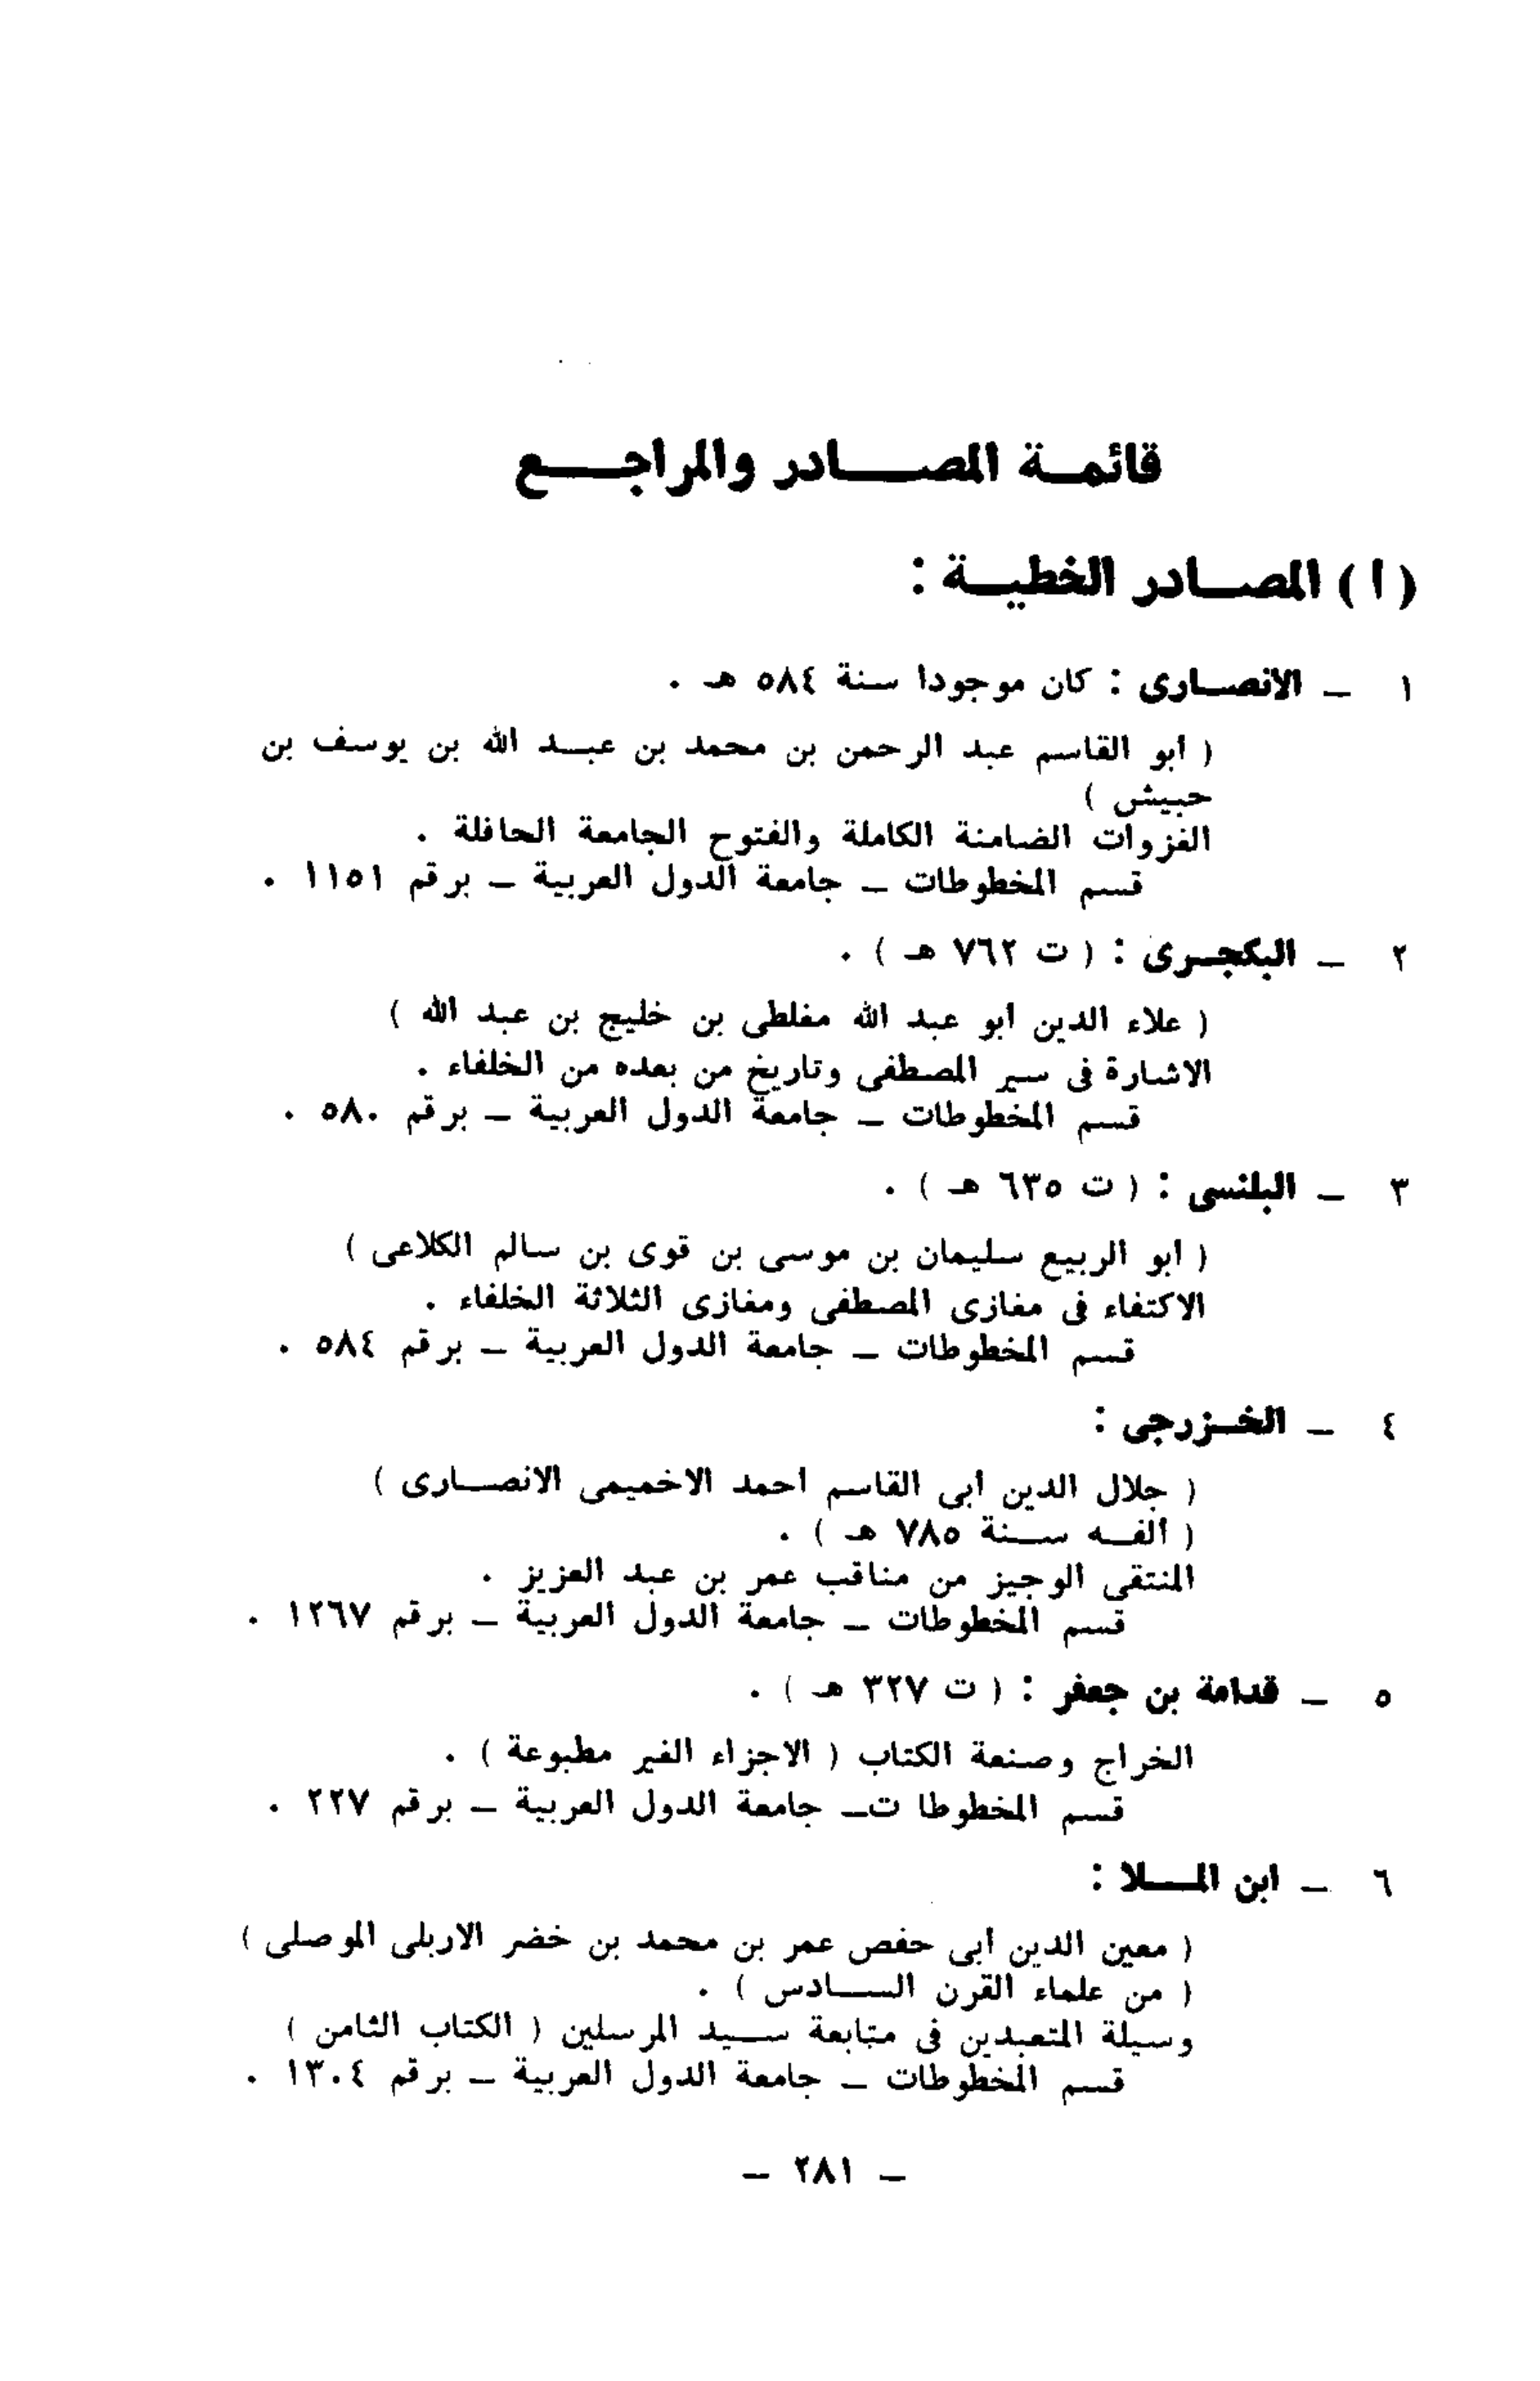 قائمة المصادر والمراجع
( ا ) المصادر الخطية :
١ – الانصارى : كان موجودا سنة ٥٨٤ هـ .
( أبو القاسم عبد الرحمن بن محمد بن عبد الله بن يوسف بن
حبيش )
الغزوات الضامنة الكاملة والفتوح الجامعة الحافلة .
قسم المخطوطات – جامعة الدول العربية – برقم ١١٥١ .
٢ – البكجرى : ( ت ٧٦٢ هـ ) .
( علاء الدين أبو عبد الله مغلطى بن خليج بن عبد الله )
الاشارة فى سير المصطفى وتاريخ من بعده من الخلفاء .
قسم المخطوطات – جامعة الدول العربية – برقم ٥٨٠ .
٣ – البلنسى : ( ت ٦٣٥ هـ ) .
( أبو الربيع سليمان بن موسى بن قوى بن سالم الكلاعى )
الاكتفاء فى مغازى المصطفى ومغازى الثلاثة الخلفاء .
قسم المخطوطات – جامعة الدول العربية – برقم ٥٨٤ .
٤ – الخزرجى :
( جلال الدين أبى القاسم أحمد الاخميمى الانصارى )
( ألفه سنة ٧٨٥ هـ ) .
المنتقى الوجيز من مناقب عمر بن عبد العزيز .
قسم المخطوطات – جامعة الدول العربية – برقم ١٢٦٧ .
٥ – قدامة بن جعفر : ( ت ٣٢٧ هـ ) .
الخراج وصنعة الكتاب ( الاجزاء الغير مطبوعة ) .
قسم المخطوطا ت– جامعة الدول العربية – برقم ٢٢٧ .
٦ – ابن الملا :
( معين الدين أبى حفص عمر بن محمد بن خضر الاربلى الموصلى )
( من علماء القرن السادس ) .
وسيلة المتعبدين فى متابعة سيد المرسلين ( الكتاب الثامن )
قسم المخطوطات – جامعة الدول العربية – برقم ١٣٠٤ .
– ٢٨١ –